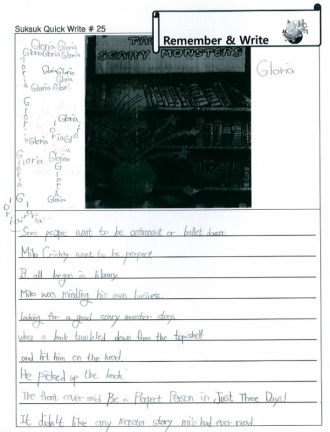 Suksuk Quick Write # 25
Remember & Write
SCARY MONSTERS
Gloria Gloria
Gloria
Gloria
Gloria
Gloria
Some people want to be astronaut or ballet dancer.
Milo Crinkly want to be perfect
It all began in library.
Milo was minding his own business.
looking for a good scary monster story.
when a book tumbled down from the topshelf
and hit him on the head.
He picked up the book.
The front cover said Be a Perfect Person in Just Three Days!
It didn't like any monster story milo had ever read.